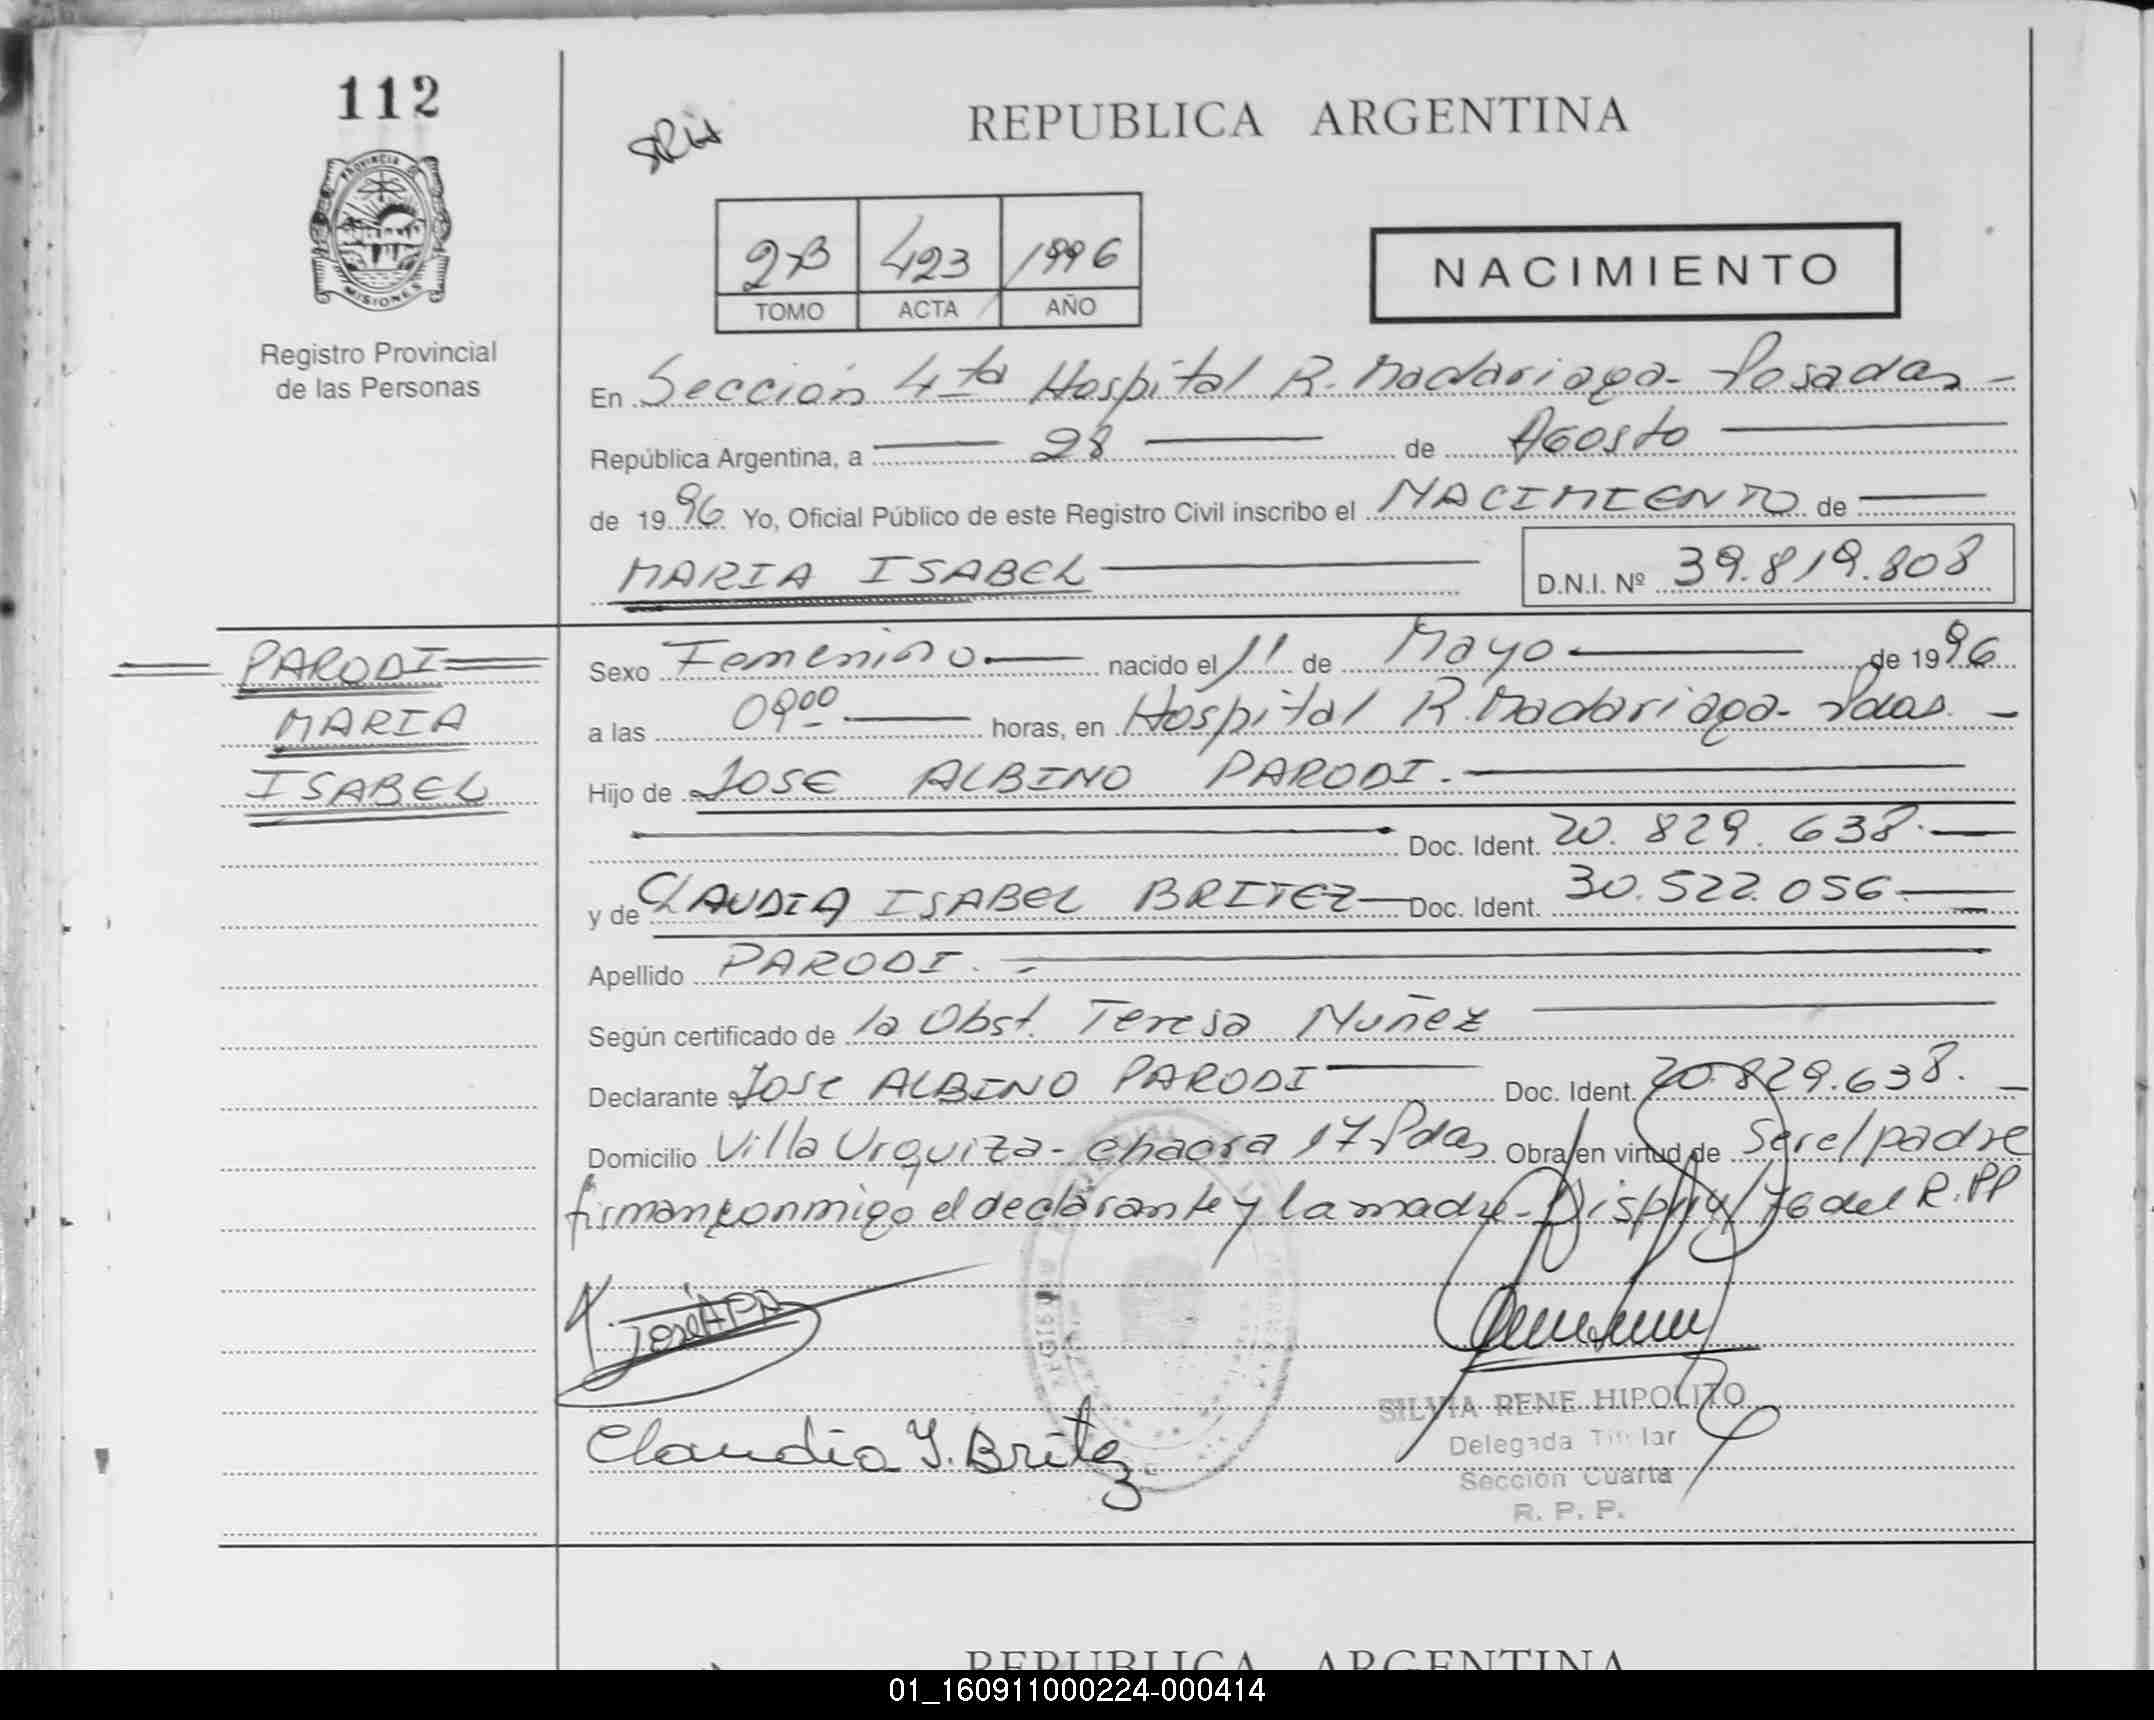 112
REPUBLICA ARGENTINA
PROVINCIA DE MISIONES
2-B 423 1996
TOMO ACTA AÑO
NACIMIENTO
Registro Provincial
de las Personas
En Sección 4ta Hospital R. Madariaga- Posadas
República Argentina, a 28 de Agosto
de 1996 Yo, Oficial Público de este Registro Civil inscribo el NACIMIENTO de
MARIA ISABEL D.N.I. Nº 39.819.808
PARODI
MARIA
ISABEL
Sexo Femenino nacido el 11 de Mayo de 1996
a las 09 00 horas, en Hospital R. Madariaga- Pdas.
Hijo de JOSE ALBINO PARODI.
Doc. Ident. 20.829.638.
y de CLAUDIA ISABEL BRITEZ Doc. Ident. 30.522.056
Apellido PARODI.
Según certificado de la Obst. Teresa Nuñez
Declarante JOSE ALBINO PARODI Doc. Ident. 20.829.638.
Domicilio Villa Urquiza- chacra 17 Pdas Obra en virtud de Ser el padre
firman conmigo el declarante y la madre- del R.PP
Claudia I. Britez
SILVIA RENE HIPOLITO
Delegada Titular
Sección Cuarta
R. P. P.
REPUBLICA ARGENTINA
01_160911000224-000414